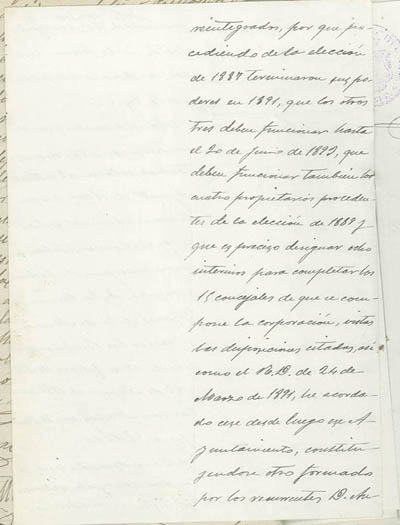 reintegrados, por que pro-
cediendo de la elección
de 1887 terminaron sus po
deres en 1891, que los otros
tres deben funcionar hasta
el 20 de Junio de 1892, que
deben funcionar tambien los
cuatro propietarios proceden-
tes de la elección de 1889 y
que es preciso designar ocho
interinos para completar los
15 concejales de que se com-
pone la corporación, vistas
las disposiciones citadas, asi
como el R. D. de 24 de
Marzo de 1891, he acorda-
do cese desde luego ese A-
yuntamiento, constitu-
yendose otro formado
por los recurrentes D. An-